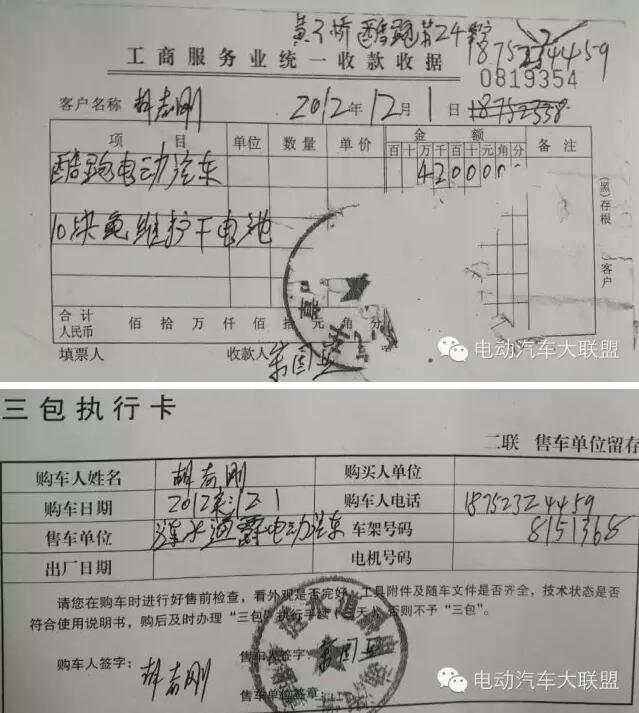 黄子桥 酷跑 24
18752324459
工商服务业统一收款收据
0819354
客户名称 胡志刚 2012年12月1日
项目 单位 数量 单价 金额 备注
百十万千百十元角分
酷跑电动汽车 42000
10块免维护干电池
(黑)存根
客户
合计
人民币 佰拾万仟佰拾元角分
填票人 收款人
电动汽车大联盟
三包执行卡
二联 售车单位留存
购车人姓名 胡志刚 购买人单位
购车日期 2012 12 1 购车人电话 18752324459
售车单位 涟水通爵电动汽车 车架号码 8151368
出厂日期 电机号码
请您在购车时进行好售前检查,看外观是否完好,工具附件及随车文件是否齐全,技术状态是否
符合使用说明书,购后及时办理“三包”执行手续 天)否则不予“三包”。
购车人签字:胡志刚 售车人签字:
售车单位签章:
电动汽车大联盟